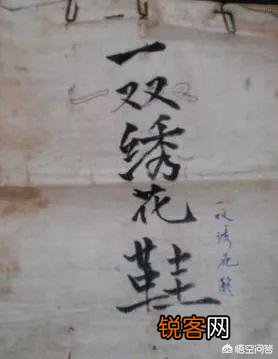 一双绣花鞋
一双绣花鞋
锐客网
悟空问答